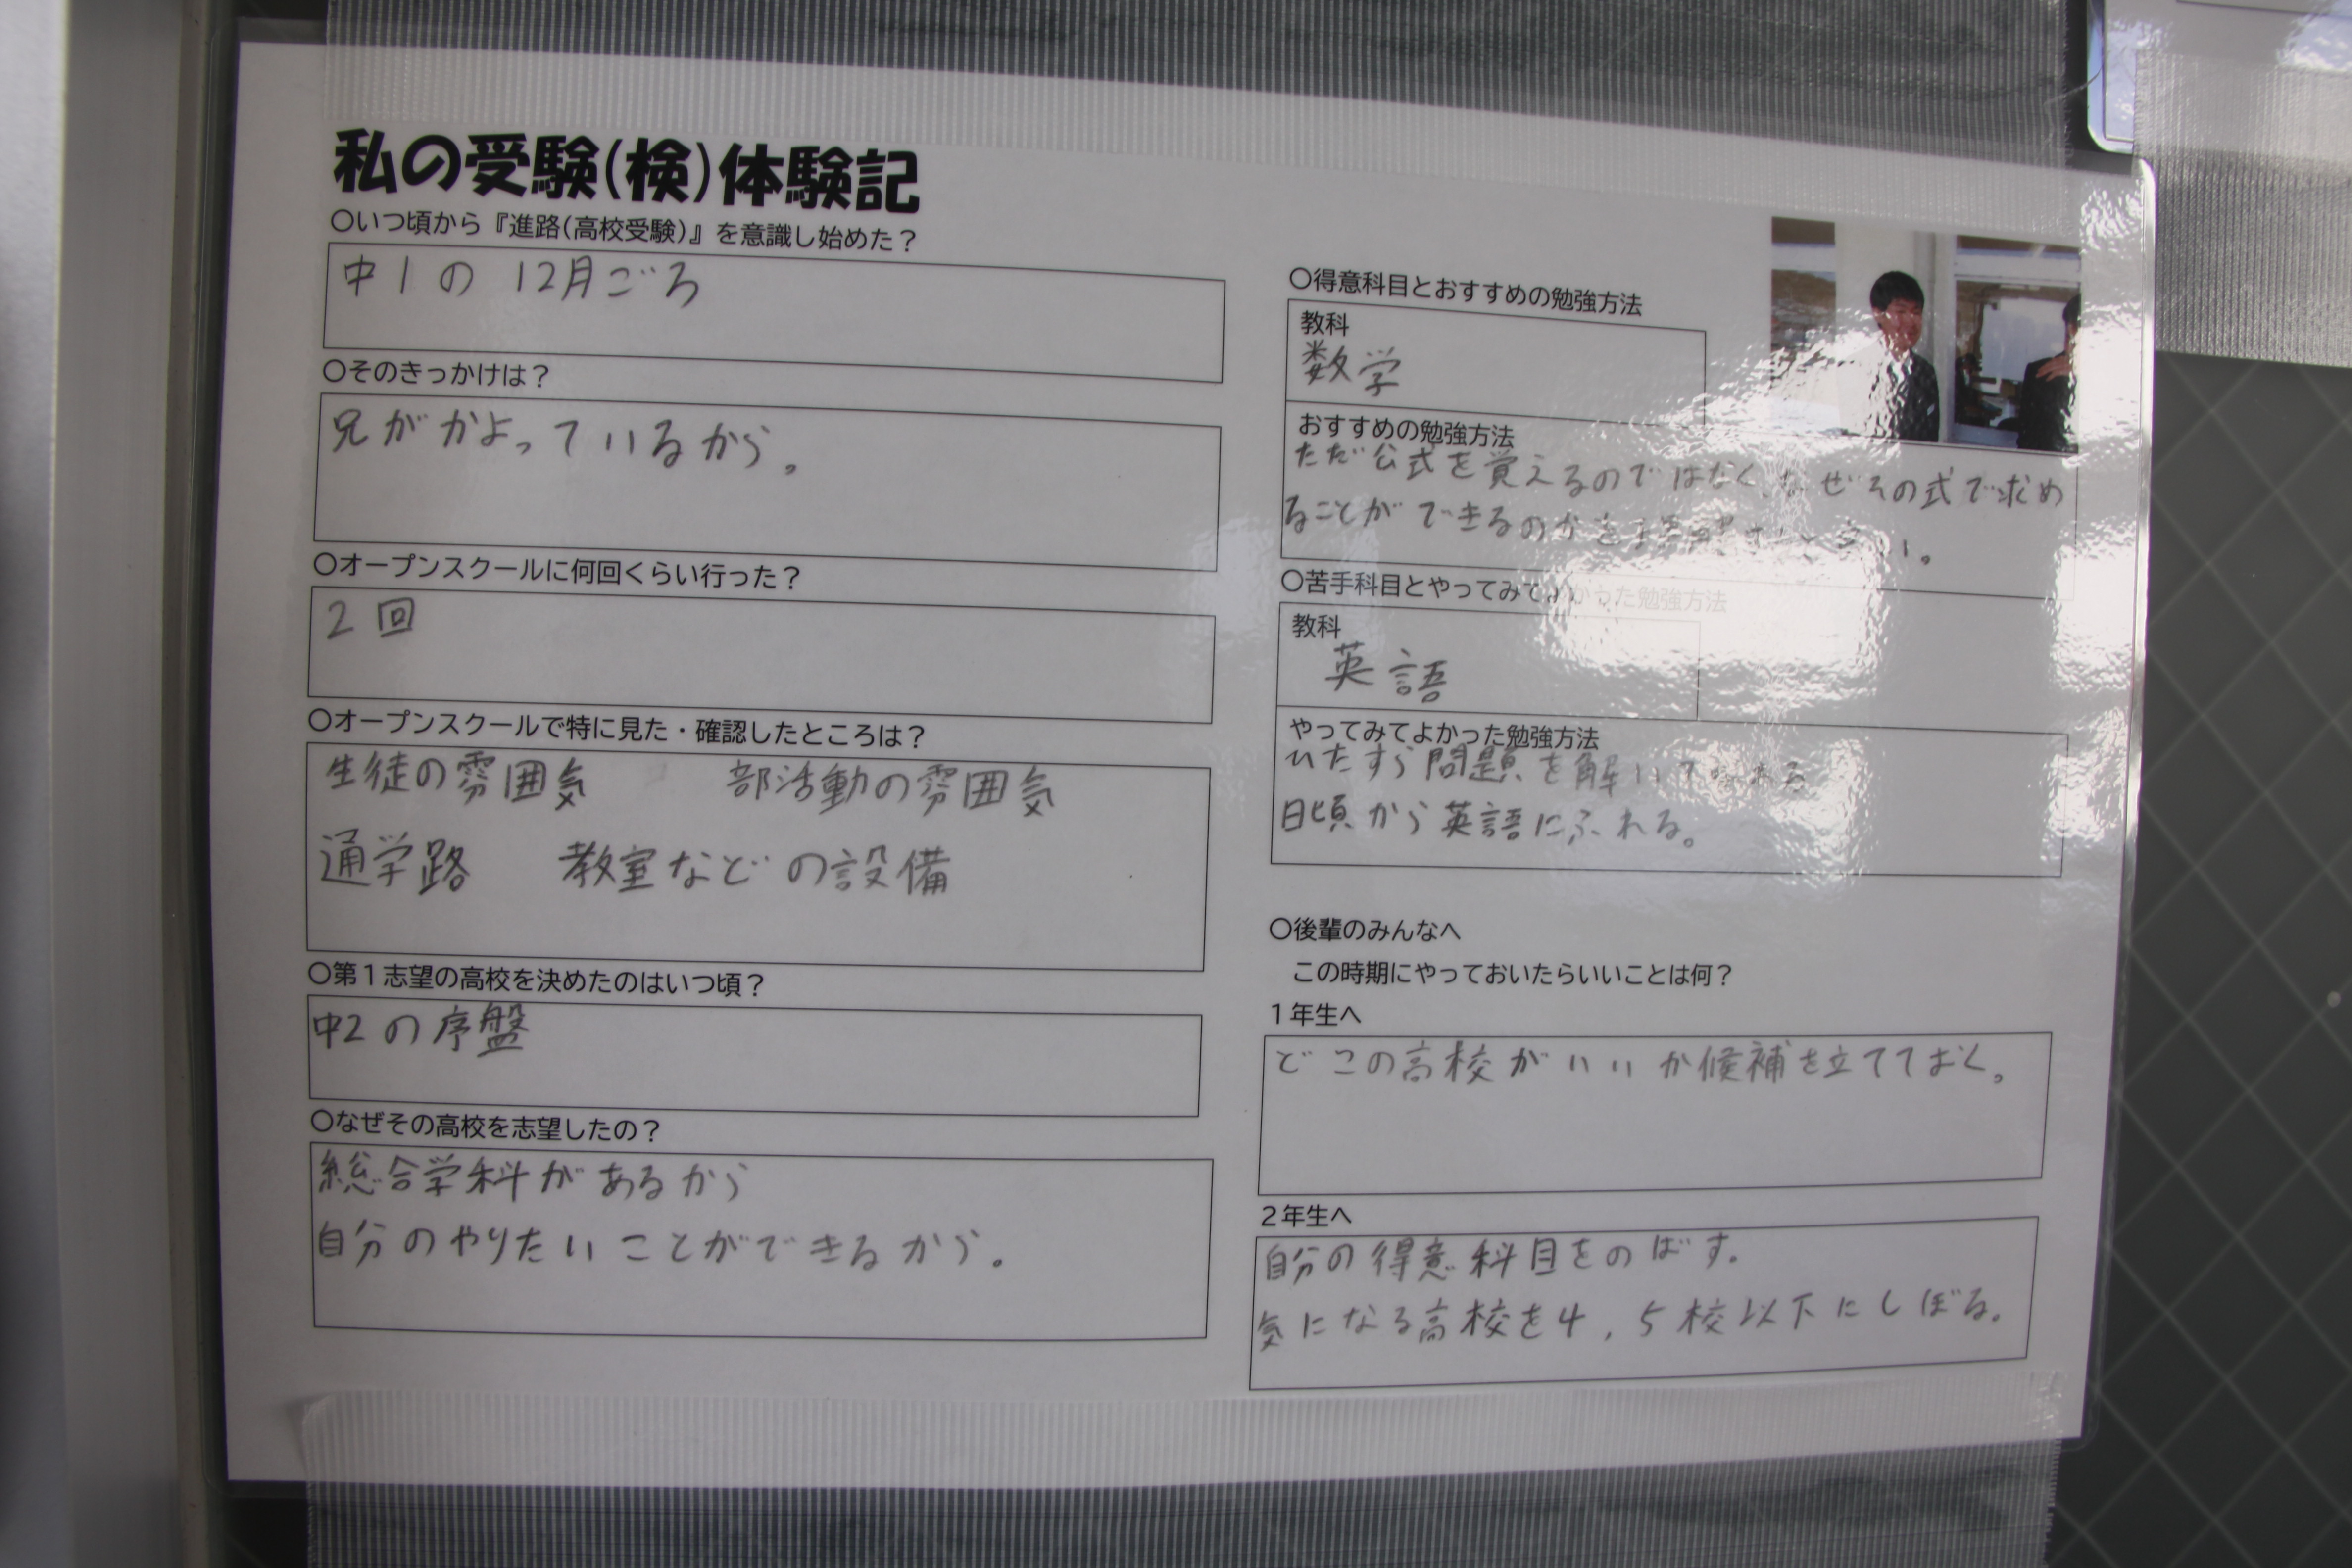 私の受験(検)体験記
〇いつ頃から『進路(高校受験)』を意識し始めた？
中1の 12月ごろ
〇そのきっかけは？
兄がかよっているから。
〇オープンスクールに何回くらい行った？
2回
〇オープンスクールで特に見た・確認したところは？
生徒の雰囲気 部活動の雰囲気
通学路 教室などの設備
〇第１志望の高校を決めたのはいつ頃？
中2の序盤
〇なぜその高校を志望したの？
総合学科があるから
自分のやりたいことができるから。
〇得意科目とおすすめの勉強方法
教科
数学
おすすめの勉強方法
ただ公式を覚えるのではなく、なぜその式で求め
ることができるのかを理解
〇苦手科目とやってみてよかった勉強方法
教科
英語
やってみてよかった勉強方法
ひたすら問題を解いて
日頃から英語にふれる。
〇後輩のみんなへ
この時期にやっておいたらいいことは何？
１年生へ
どこの高校がいいか候補を立てておく。
２年生へ
自分の得意科目をのばす。
気になる高校を4,5校以下にしぼる。